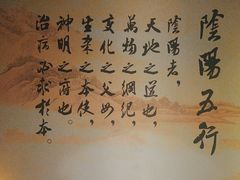 陰陽五行
陰陽者，
天地之道也，
萬物之綱紀，
變化之父母，
生殺之本始，
神明之府也。
治病必求於本。